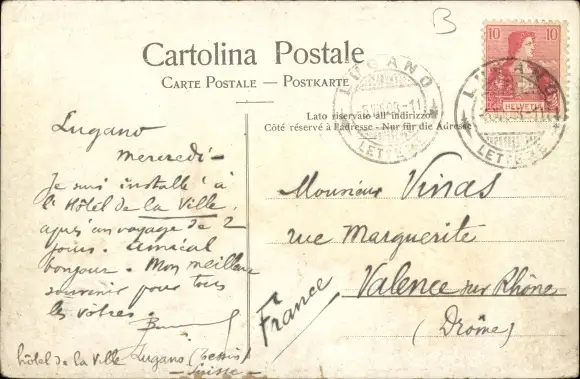 B
Cartolina Postale
CARTE POSTALE — POSTKARTE
Lato riservato all'indirizzo
Côté réservé à l'adresse - Nur für die Adresse
10 10
HELVETIA
LUGANO
LETTERE
LUGANO
LETTERE
Lugano
mercredi -
Je suis installé à
l'Hôtel de La Ville.
après un voyage de 2
jours. amical
bonjour. Mon meilleur
souvenir pour tous
les vôtres.
hôtel de la ville Lugano (Tessin)
- Suisse -
Monsieur Vinas
rue Marguerite
Valence sur Rhône
(Drôme)
France